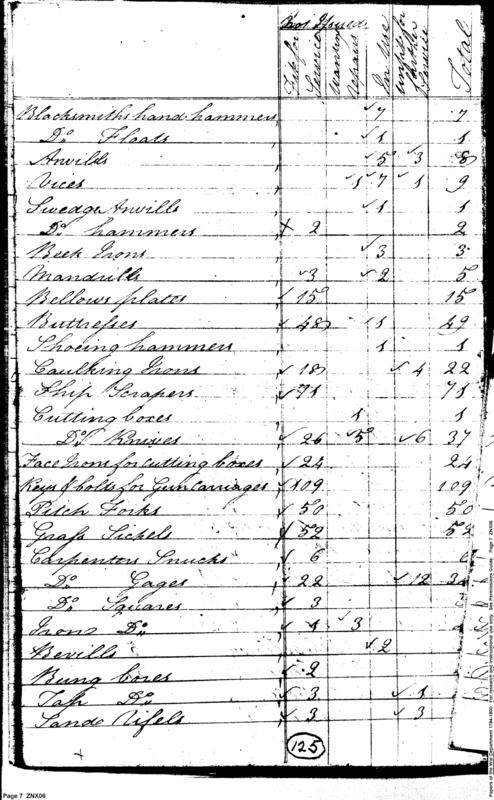 Not Issued
Fit for Service | Wanting Repairs | In Use | for further Service | Total
Blacksmiths hand hammers 7 7
Do. Floats 1 1
Anvills 5 3 8
Vices 1 7 1 9
Swedge Anvills 1 1
Do. hammers 2 2
Beek Irons 3 3
Mandrills 3 2 5
Bellows plates 15 15
Buttresses 48 1 49
Shoeing hammers 1 1
Caulking Irons 18 4 22
Ship Scrapers 71 71
Cutting boxes 1 1
Do. Knives 26 5 6 37
Face Irons for cutting boxes 24 24
Keys & bolts for Gun Carriages 109 109
Pitch Forks 50 50
Grass Sickels 52 52
Carpenters 6 6
Do. Gages 22 12 34
Do. Squares 3
Irons Do. 1 3
Bevills 2
Bung bores 2
Tap Do. 3 1
Sand 3 3
125
Page 7 ZNX06